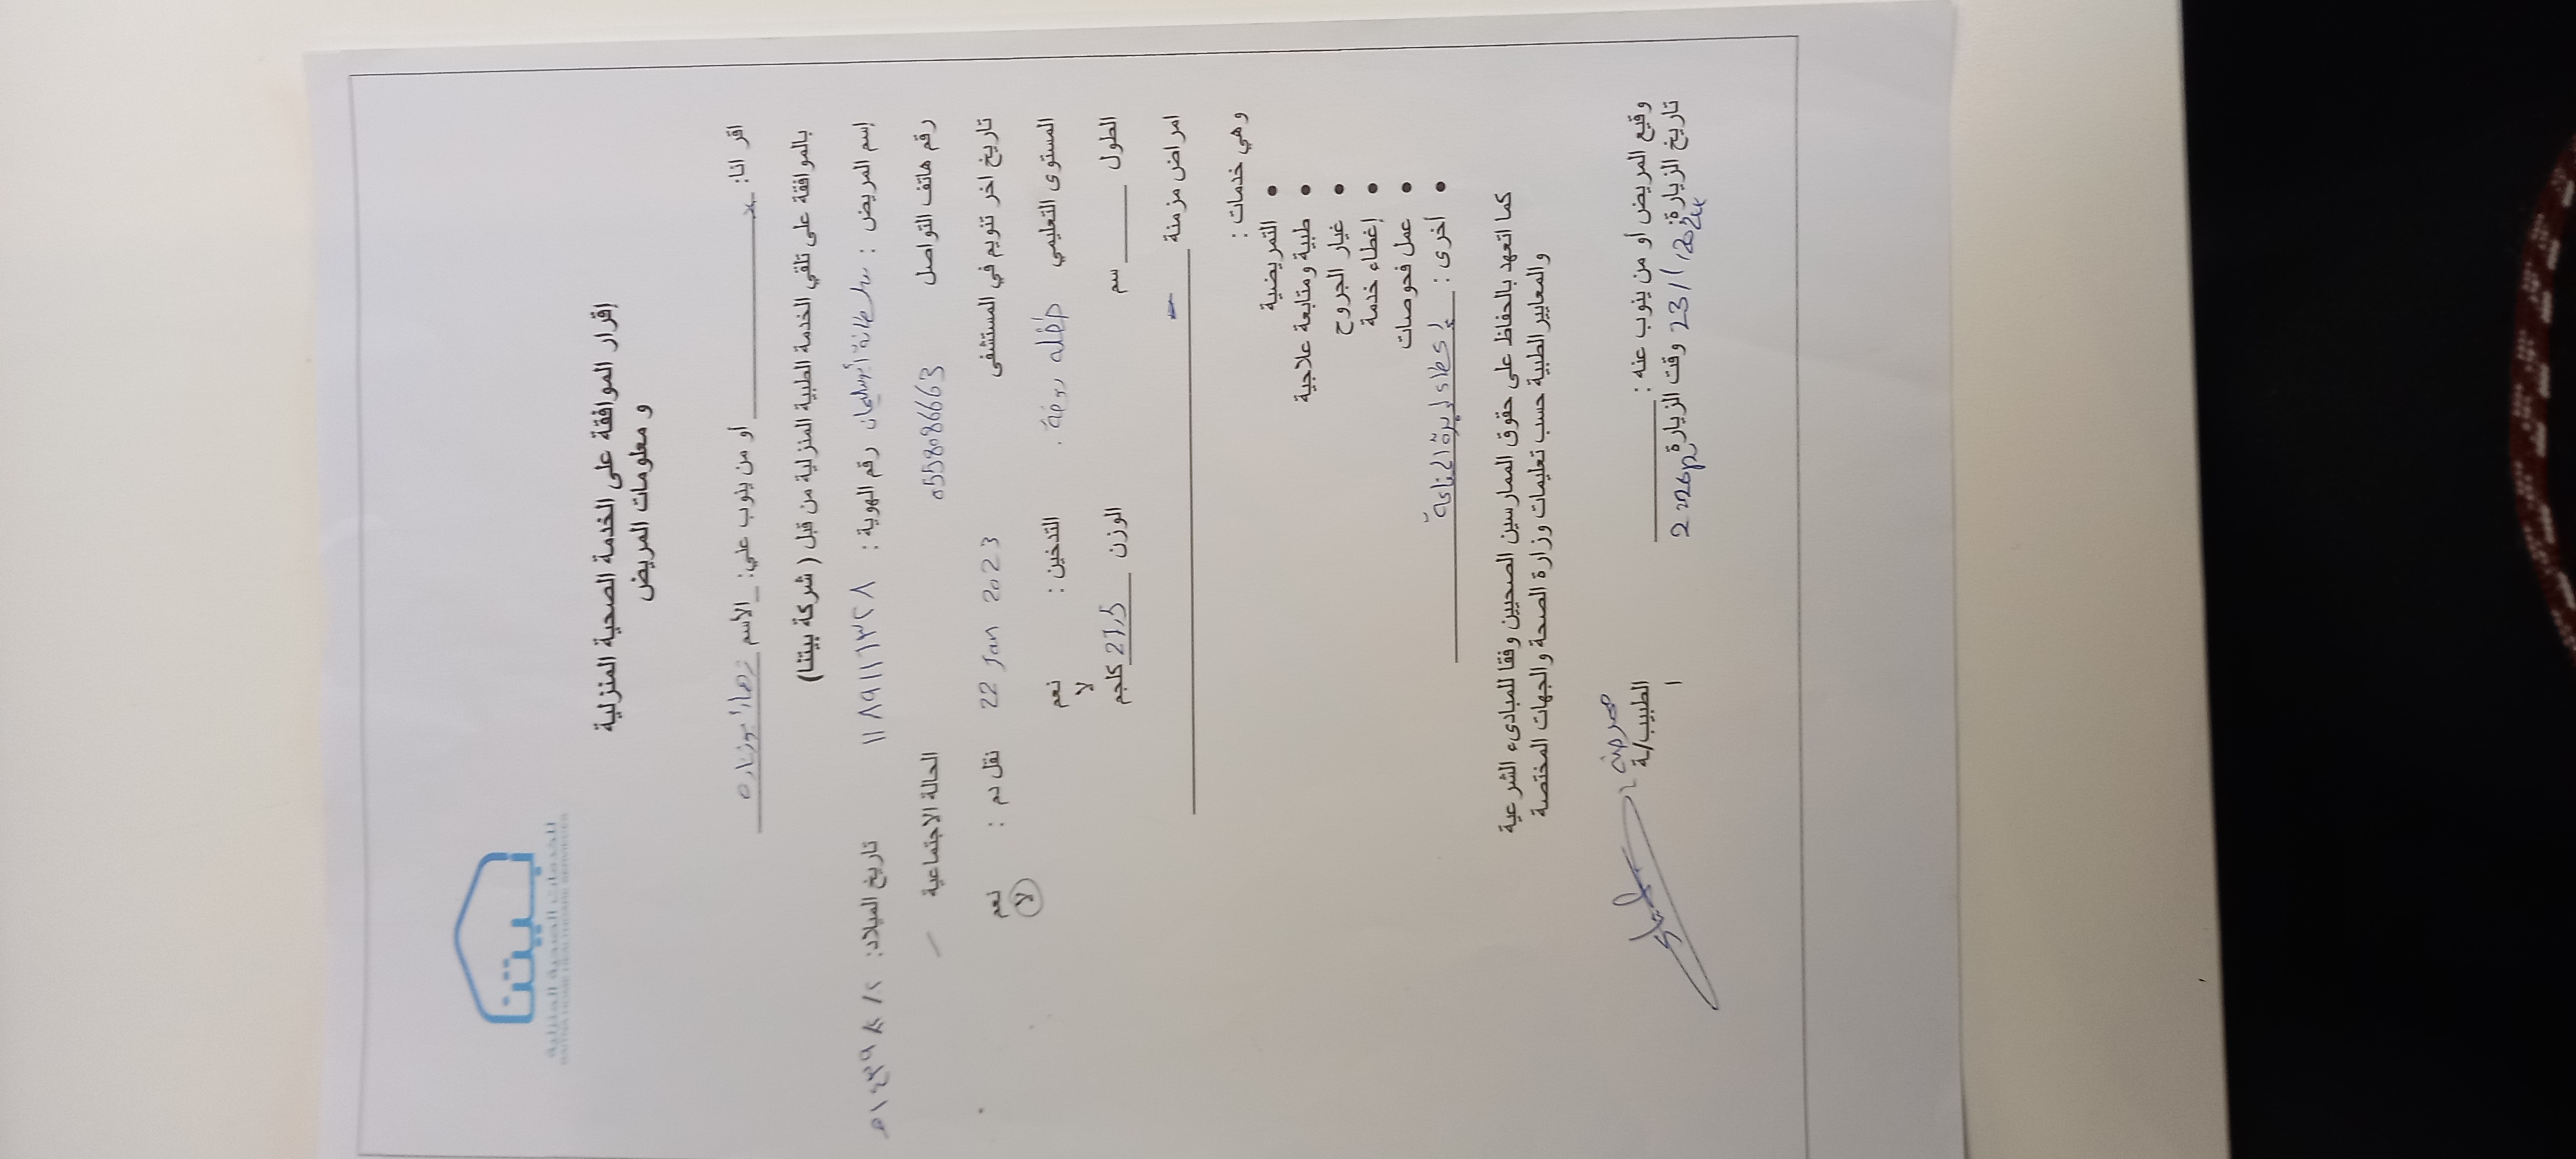 بيتنا
للخدمات الصحية المنزلية
إقرار الموافقة على الخدمة الصحية المنزلية
و معلومات المريض
اقر انا: أو من ينوب علي: الأسم
بالموافقة على تلقي الخدمة الطبية المنزلية من قبل ( شركة بيتنا)
إسم المريض : سلطانة أبوسليمان رقم الهوية : ١١٨٩١١٦٣٢٨ تاريخ الميلاد:
رقم هاتف التواصل 0558086663 الحالة الاجتماعية
تاريخ اخر تنويم في المستشفى 22 Jan 2023 نقل دم : نعم
لا
المستوى التعليمي طفله روضة . التدخين : نعم
لا
الطول سم الوزن 27,5 كلجم
امراض مزمنة -
وهي خدمات :
• التمريضية
• طبية ومتابعة علاجية
• غيار الجروح
• إغطاء خدمة
• عمل فحوصات
• أخرى : إعطاء إبرة المناعة
كما اتعهد بالحفاظ على حقوق الممارسين الصحيين وفقا للمبادىء الشرعية
والمعايير الطبية حسب تعليمات وزارة الصحة والجهات المختصة
وقيع المريض أو من ينوب عنه : الطبيب/ـة ممرضة
تاريخ الزيارة: وقت الزيارة